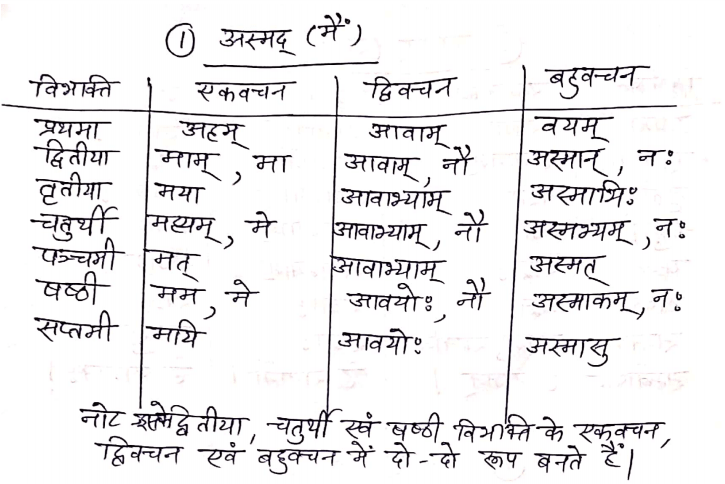 ① अस्मद् (मैं)
विभक्ति एकवचन द्विवचन बहुवचन
प्रथमा अहम् आवाम् वयम्
द्वितीया माम्, मा आवाम्, नौ अस्मान्, नः
तृतीया मया आवाभ्याम् अस्माभिः
चतुर्थी मह्यम्, मे आवाभ्याम्, नौ अस्मभ्यम्, नः
पञ्चमी मत् आवाभ्याम् अस्मत्
षष्ठी मम, मे आवयोः, नौ अस्माकम्, नः
सप्तमी मयि आवयोः अस्मासु
नोट द्वितीया, चतुर्थी एवं षष्ठी विभक्ति के एकवचन,
द्विवचन एवं बहुवचन में दो-दो रूप बनते हैं|